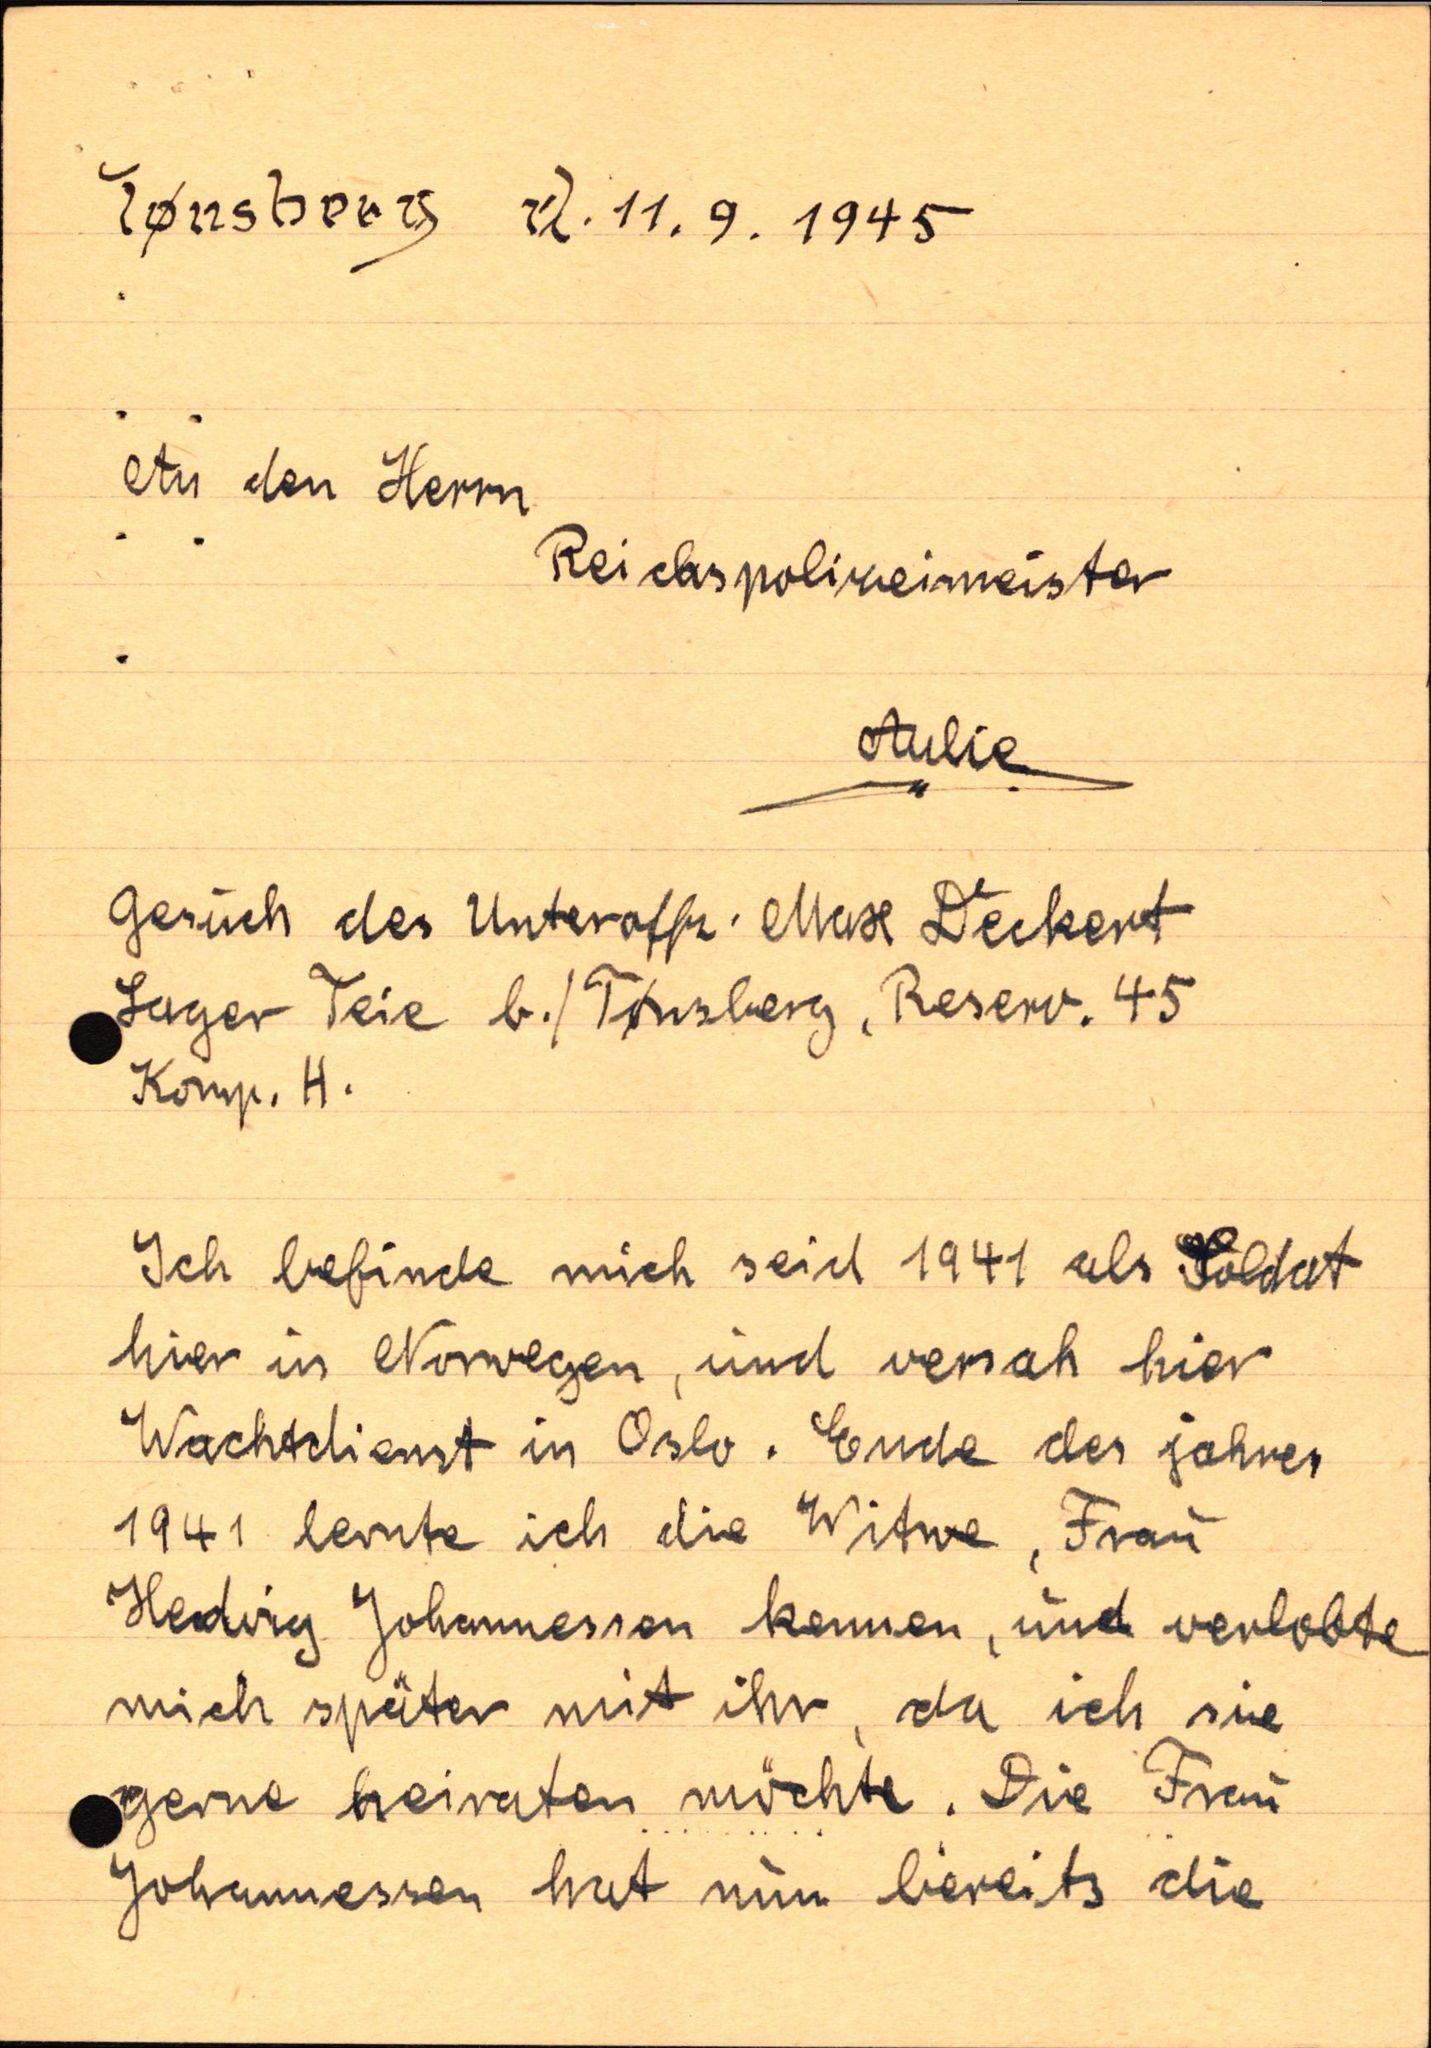 Tønsberg d. 11. 9. 1945
An den Herrn
Reichspolizeimeister
Aulie
Gesuch des Unteroffz. Max Deckert
Lager Teie b./Tønsberg, Reserv. 45
Komp. H.
Ich befinde mich seid 1941 als Soldat
hier in Norwegen, und versah hier
Wachtdienst in Oslo. Ende des jahres
1941 lernte ich die Witwe, Frau
Hedvig Johannessen kennen, und verlobte
mich später mit ihr, da ich sie
gerne heiraten möchte. Die Frau
Johannessen hat nun bereits die